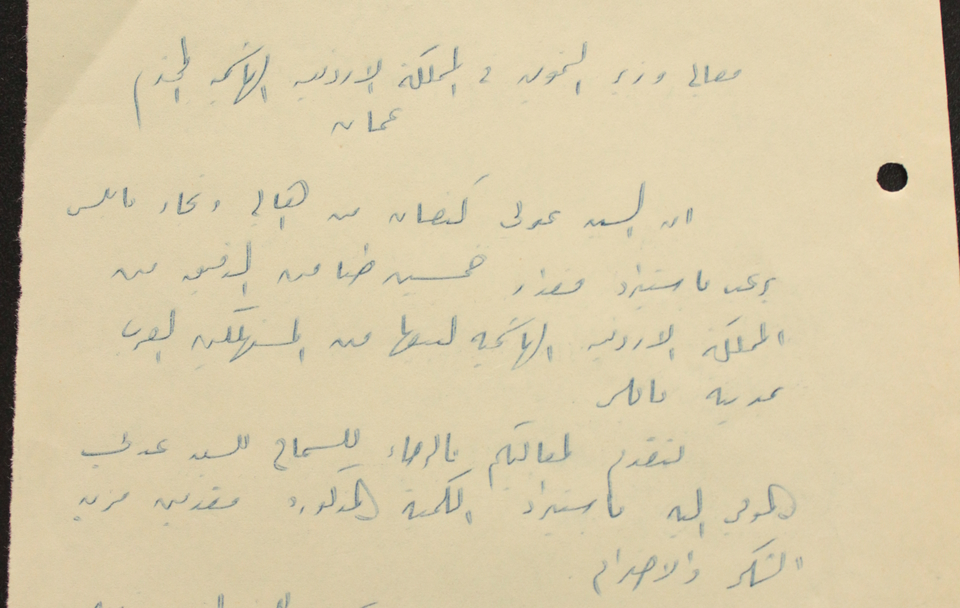 معالي وزير التموين في المملكة الاردنية الهاشمية المحترم
عمان
ان السيد عوني كنعان من اهالي وتجار نابلس
يرغب باستيراد مقدار خمسين طنا من الدقيق من
المملكة الاردنية الهاشمية لبيعها من المستهلكين العرب
بمدينة نابلس
لنتقدم لمعاليكم بالرجاء للسماح للسيد عوني
المومى اليه باستيراد الكمية المذكورة مقدمين مزيد
الشكر والاحترام